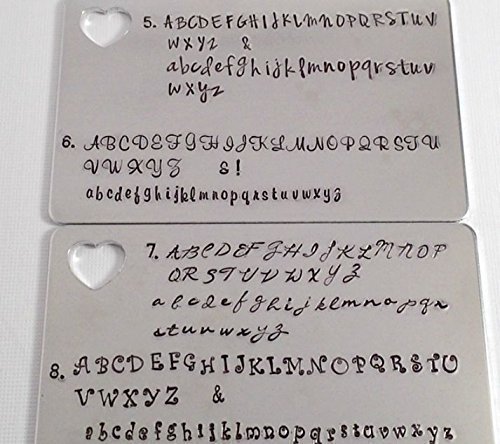 5. ABCDEFGHIJKLMNOPQRSTUV
WXYZ &
abcdefghijklmnopqrstuv
wxyz
6. ABCDEFGHIJKLMNOPQRSTU
VWXYZ S!
abcdefghijklmnopqrstuvwxyz
7. ABCDEFGHIJKLMNOP
QRSTUVWXYZ
abcdefghijklmnopqr
stuvwxyz
8. ABCDEFGHIJKLMNOPQRSTU
VWXYZ &
abcdefghijklmnopqrstuvwxyz